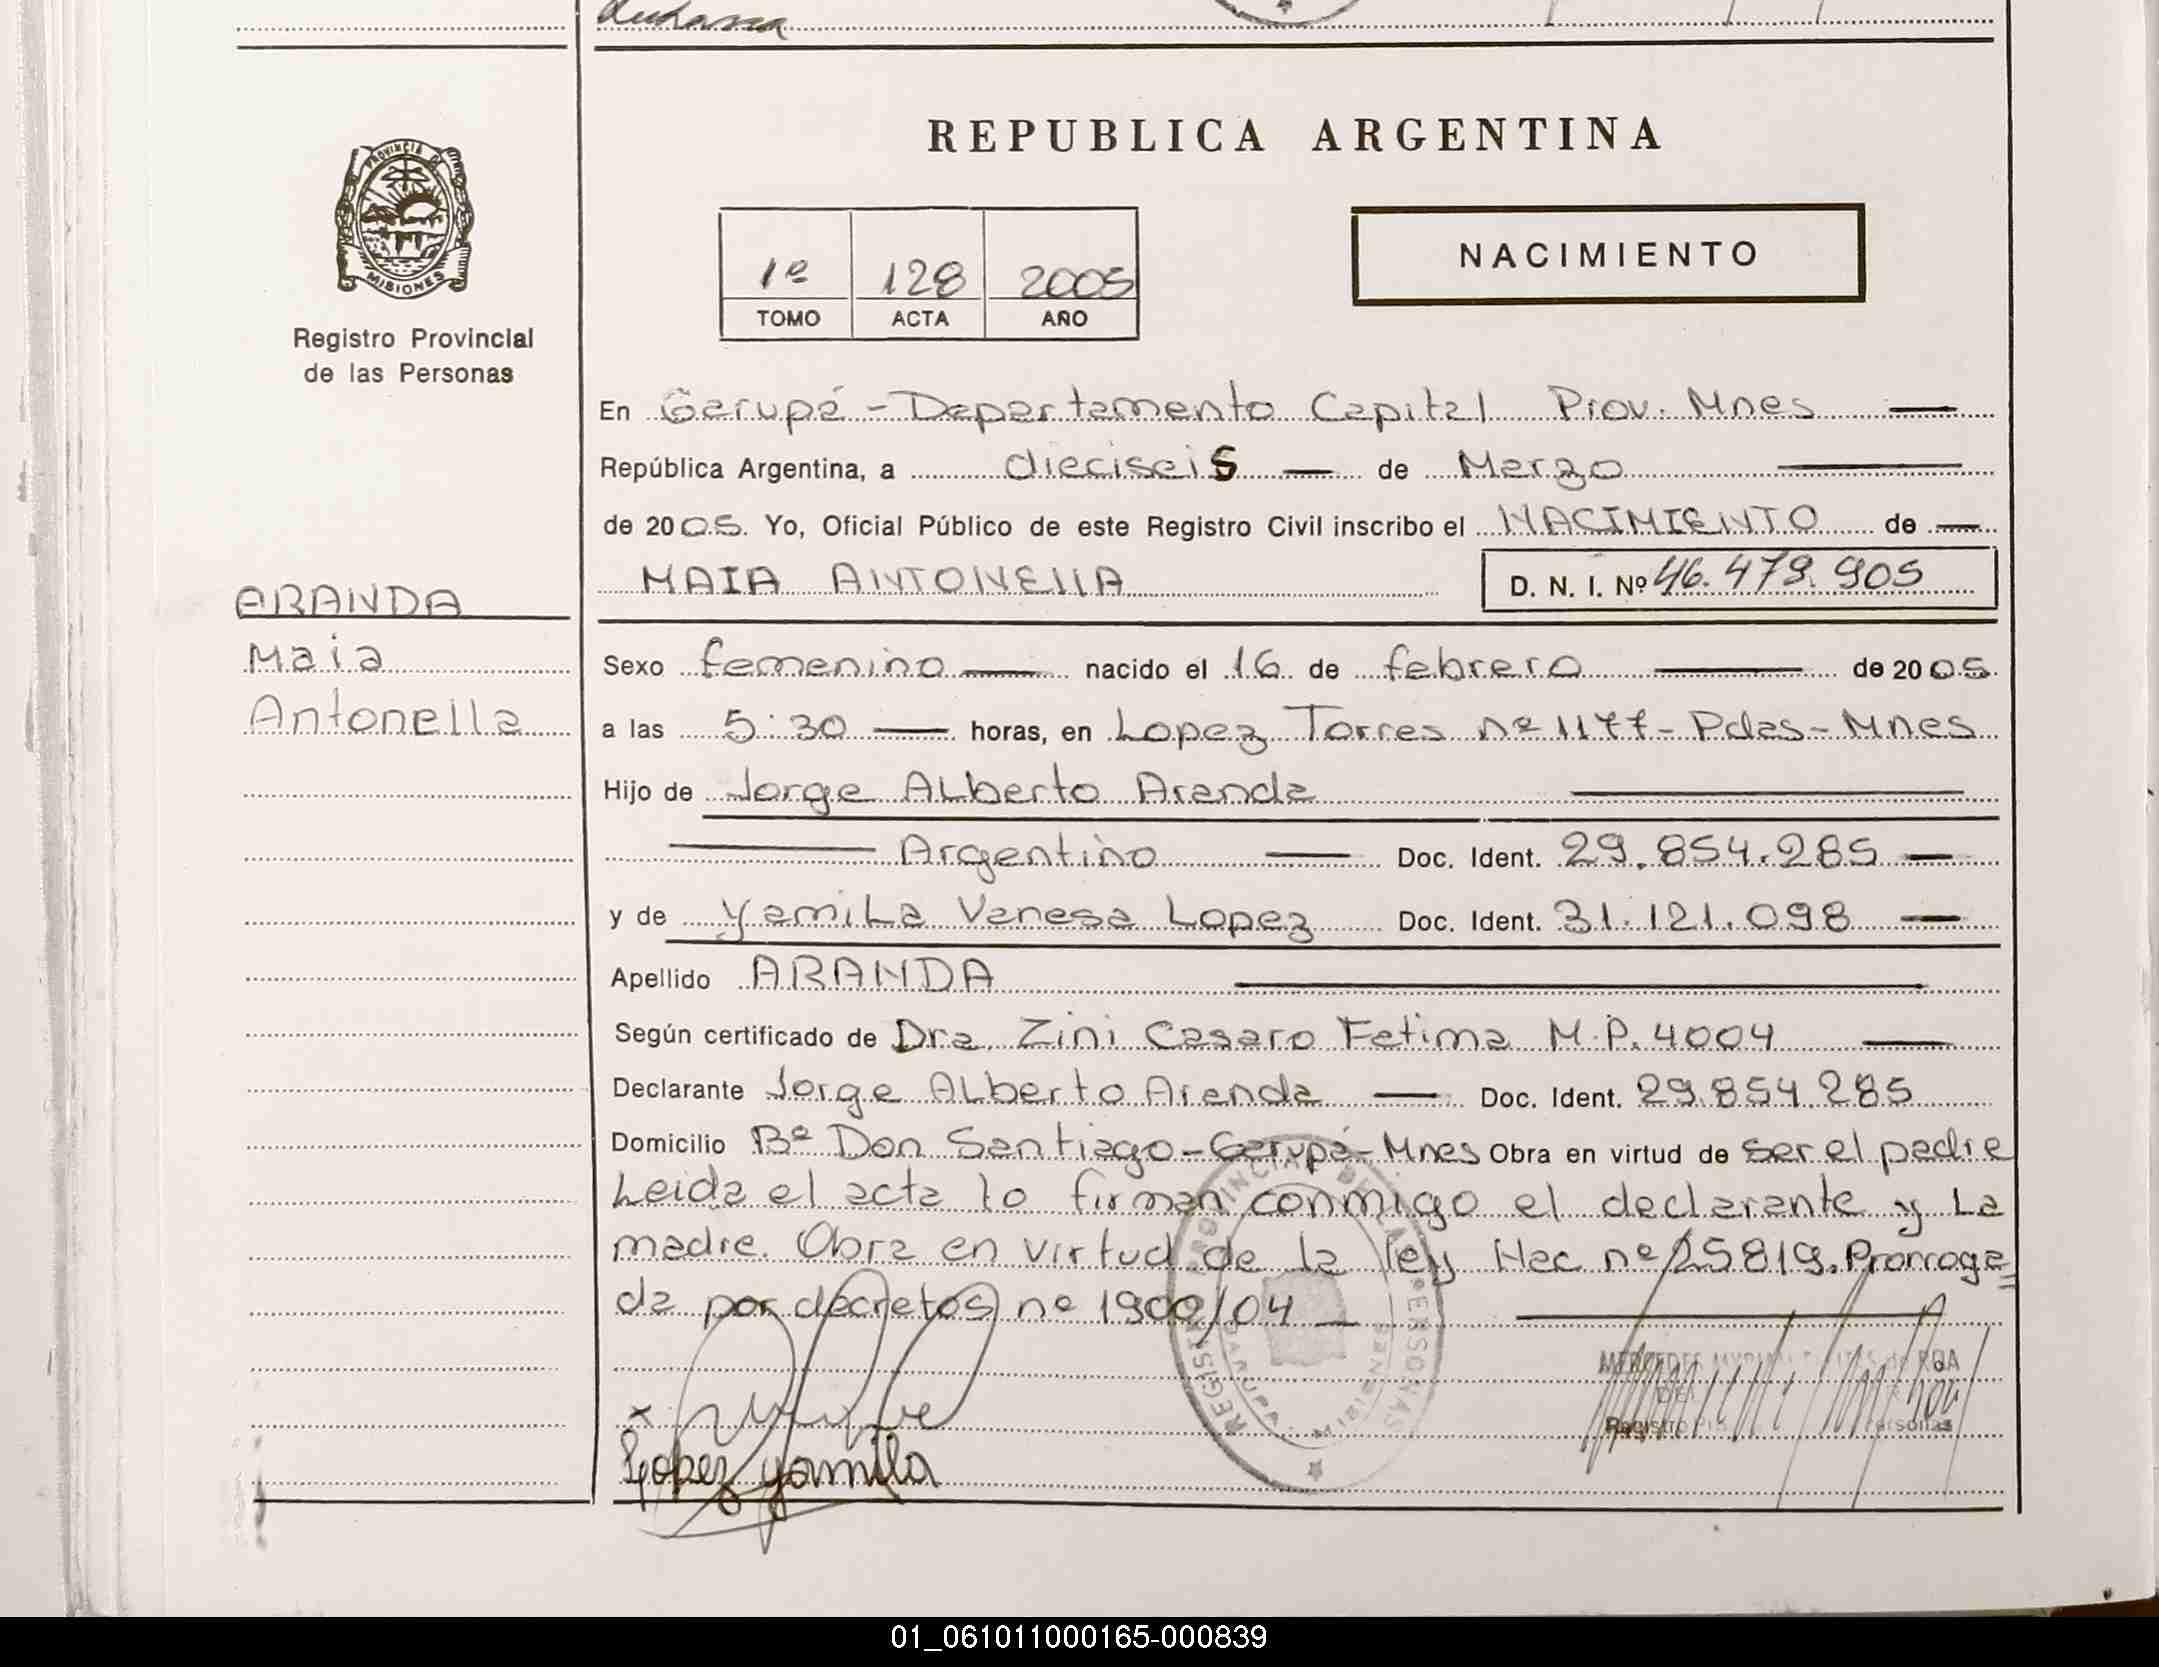 REPUBLICA ARGENTINA
PROVINCIA DE
MISIONES
Registro Provincial
de las Personas
1º 128 2005
TOMO ACTA AÑO
NACIMIENTO
En Garupá - Departamento Capital Prov. Mnes
República Argentina, a dieciseis de Marzo
de 2005. Yo, Oficial Público de este Registro Civil inscribo el NACIMIENTO de
MAIA ANTONELLA D. N. I. Nº 46.479.905
ARANDA
Maia
Antonella
Sexo femenino nacido el 16 de febrero de 2005.
a las 5:30 horas, en Lopez Torres nº 1177 - Pdas - Mnes
Hijo de Jorge ALberto Aranda
Argentino Doc. Ident. 29.854.285
y de YamiLa Vanesa Lopez Doc. Ident. 31.121.098
Apellido ARANDA
Según certificado de Dra. Zini Casaro Fatima M.P. 4004
Declarante Jorge ALberto Aranda Doc. Ident. 29.854.285
Domicilio Bº Don Santiago - Garupá - Mnes Obra en virtud de ser el padre
Leida el acta lo firman conmigo el declarante y La
madre. Obra en virtud de la ley Nac nº 25819. Prorroga=
da por decretos nº 1900/04
REGISTRO PROVINCIAL DE LAS PERSONAS
GARUPA MISIONES
MERCEDES de ROA
Registro Personas
Lopez yamila
01_061011000165-000839